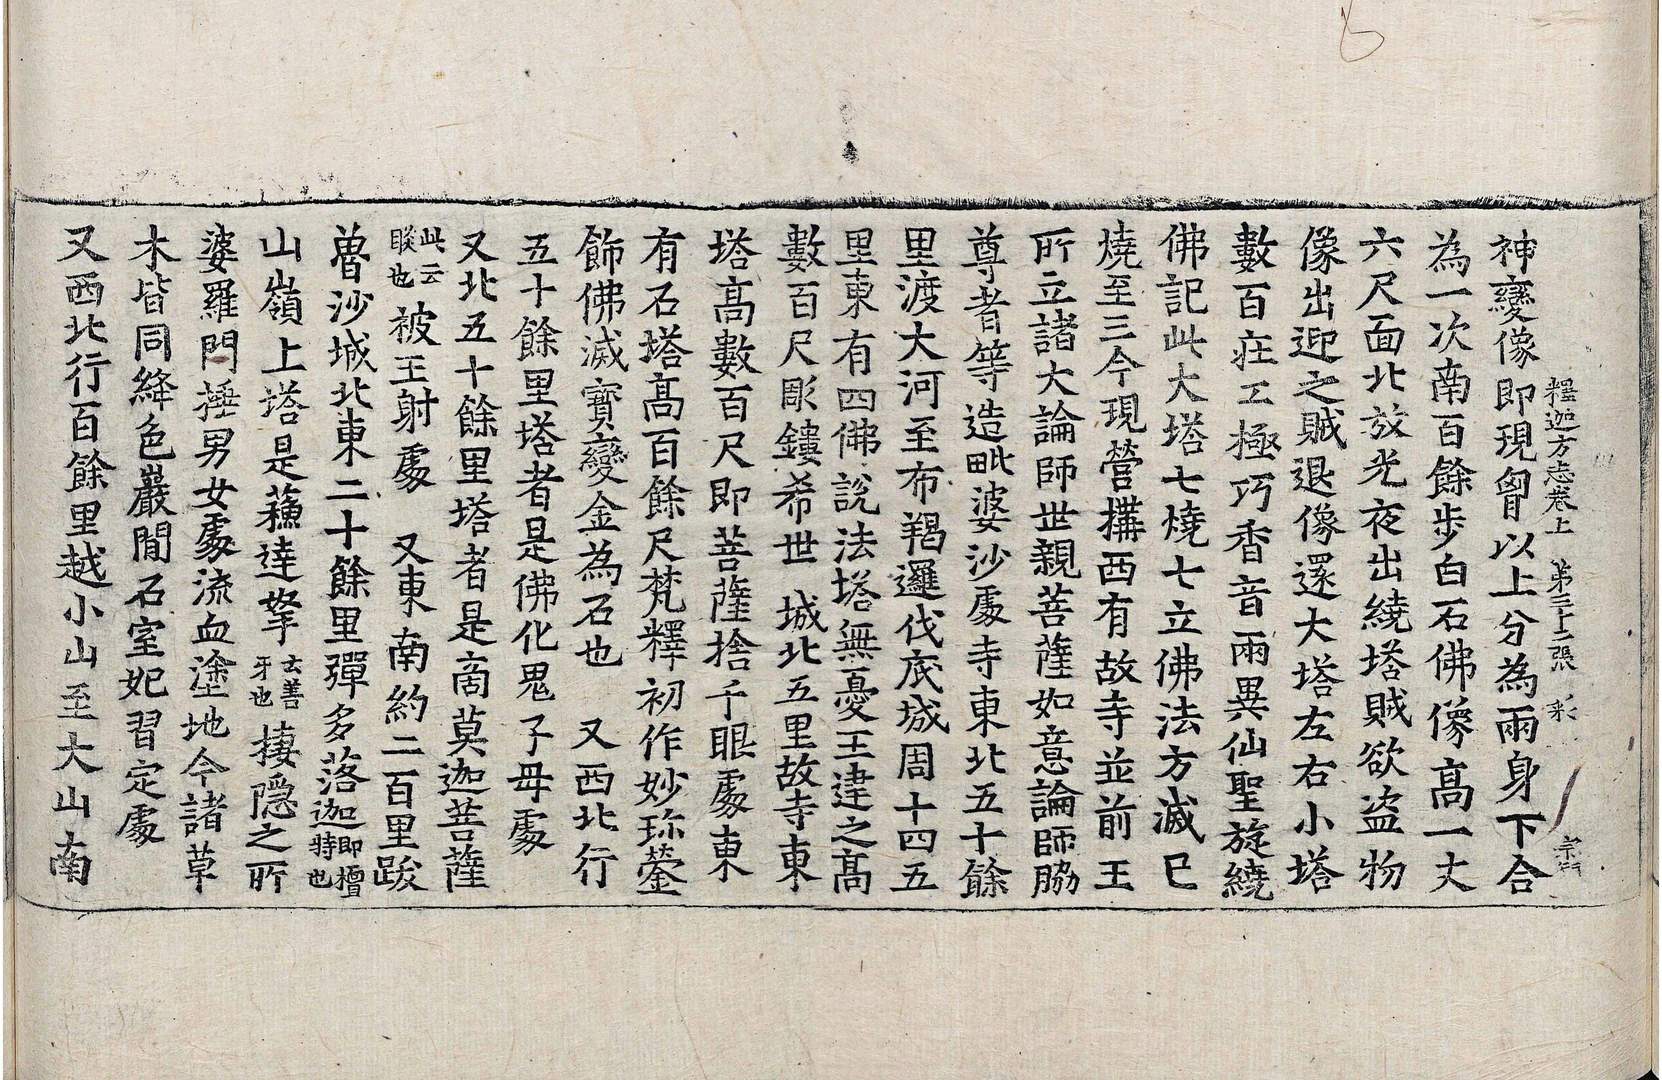 釋迦方志卷上　第三十二張　彩
神變像即現胷以上分為兩身下合
為一次南百餘步白石佛像高一丈
六尺面北放光夜出繞塔賊欲盜物
像出迎之賊退像還大塔左右小塔
數百在工極巧香音兩異仙聖旋繞
佛記此大塔七燒七立佛法方滅已
燒至三今現營構西有故寺並前王
所立諸大論師世親菩薩如意論師脇
尊者等造毗婆沙處寺東北五十餘
里渡大河至布羯邏伐底城周十四五
里東有四佛說法塔無憂王建之高
數百尺彫鏤希世　城北五里故寺東
塔高數百尺即菩薩捨千眼處東
有石塔高百餘尺梵釋初作妙珎鎣
飾佛滅寶變金為石也　又西北行
五十餘里塔者是佛化鬼子母處
又北五十餘里塔者是商莫迦菩薩
此云睒也被王射處　又東南約二百里跋
虜沙城北東二十餘里彈多落迦即檀特也
山嶺上塔是蘇達拏云善牙也棲隱之所
婆羅門捶男女處流血塗地今諸草
木皆同絳色巖間石室妃習定處
又西北行百餘里越小山至大山南